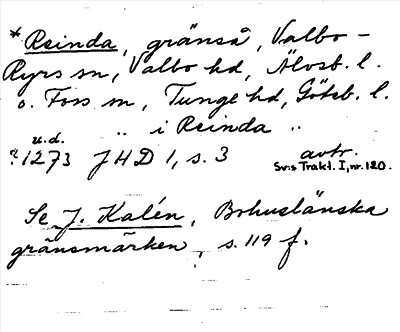 *Reinda, gränså, Valbo-
Ryrs sn, Valbo hd, Älvsb. l.
o. Foss sn, Tunge hd, Göteb. l.
u.d. „ i Reinda „
?1273 JHD 1, s. 3 avtr.
Sv:s Trakt. I, nr. 120.
Se J. Kalén, Bohuslänska
gränsmärken, s. 119 f.